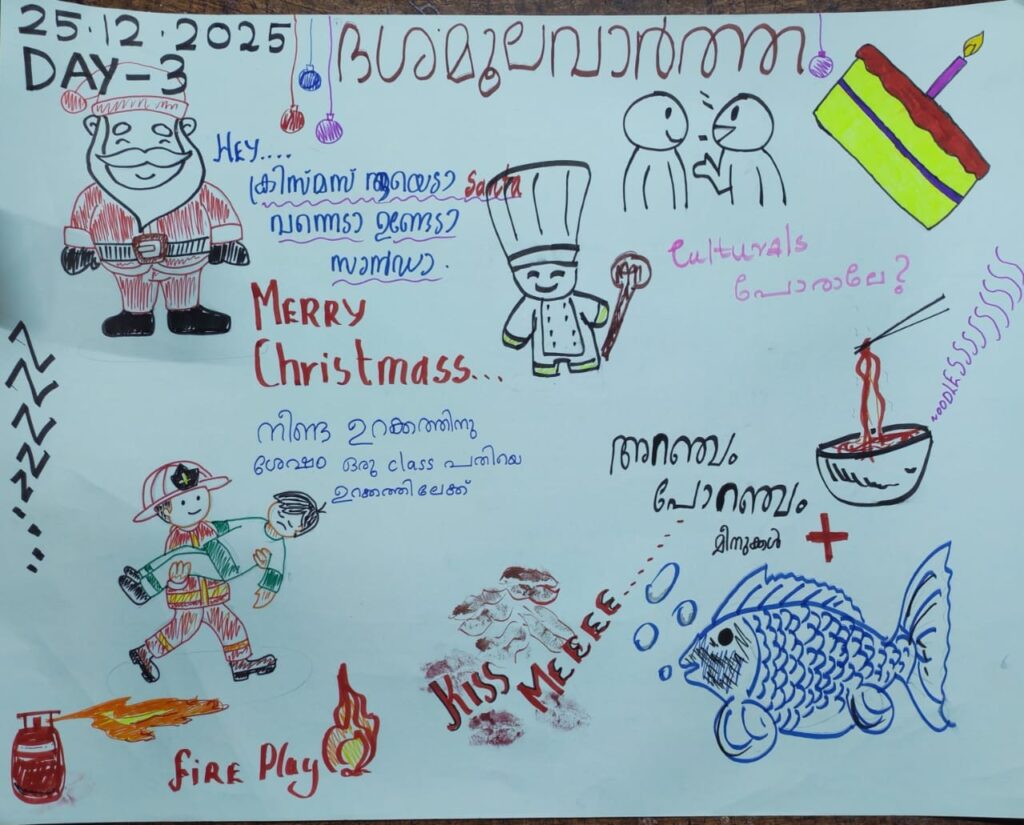 25.12.2025
DAY-3
ദശമൂലവാർത്ത
HEY....
ക്രിസ്മസ് ആയെടാ Santa
വന്നെടാ ഉണ്ടേടാ
സാന്താ.
MERRY
Christmass...
Culturals
പോരാലേ?
NOODLESSSSSSSSSS
നീണ്ട ഉറക്കത്തിനു
ശേഷം ഒരു class പതിയെ
ഉറക്കത്തിലേക്ക്
ZZZZZ...
അറഞ്ചം
പോറഞ്ചം
മീനുക്കൾ +
KISS
MEEEE......
FIRE Play